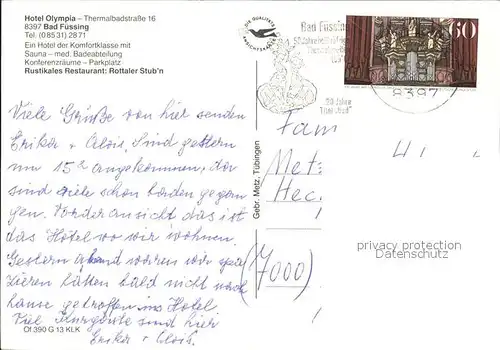 Hotel Olympia – Thermalbadstraße 16
8397 Bad Füssing
Tel. (08531) 2871
Ein Hotel der Komfortklasse mit
Sauna – med. Badeabteilung
Konferenzräume – Parkplatz
Rustikales Restaurant: Rottaler Stub'n
Bad Füssing
60
8397
Viele Grüße von hier senden
Erika + Alois. Sind gestern
um 15 angekommen, da
sind viele schon baden gegan
gen. Vorder ansicht das ist
das Hotel wo wir wohnen.
Gestern abend waren wir spa
zieren hätten bald nicht nach
hause getroffen ins Hotel
Viel Kurgäste sind hier
Erika + Alois.
Ol 390 G 13 KLK
Gebr. Metz, Tübingen
Fam
Met
Hec
(7000)
privacy protection
Datenschutz